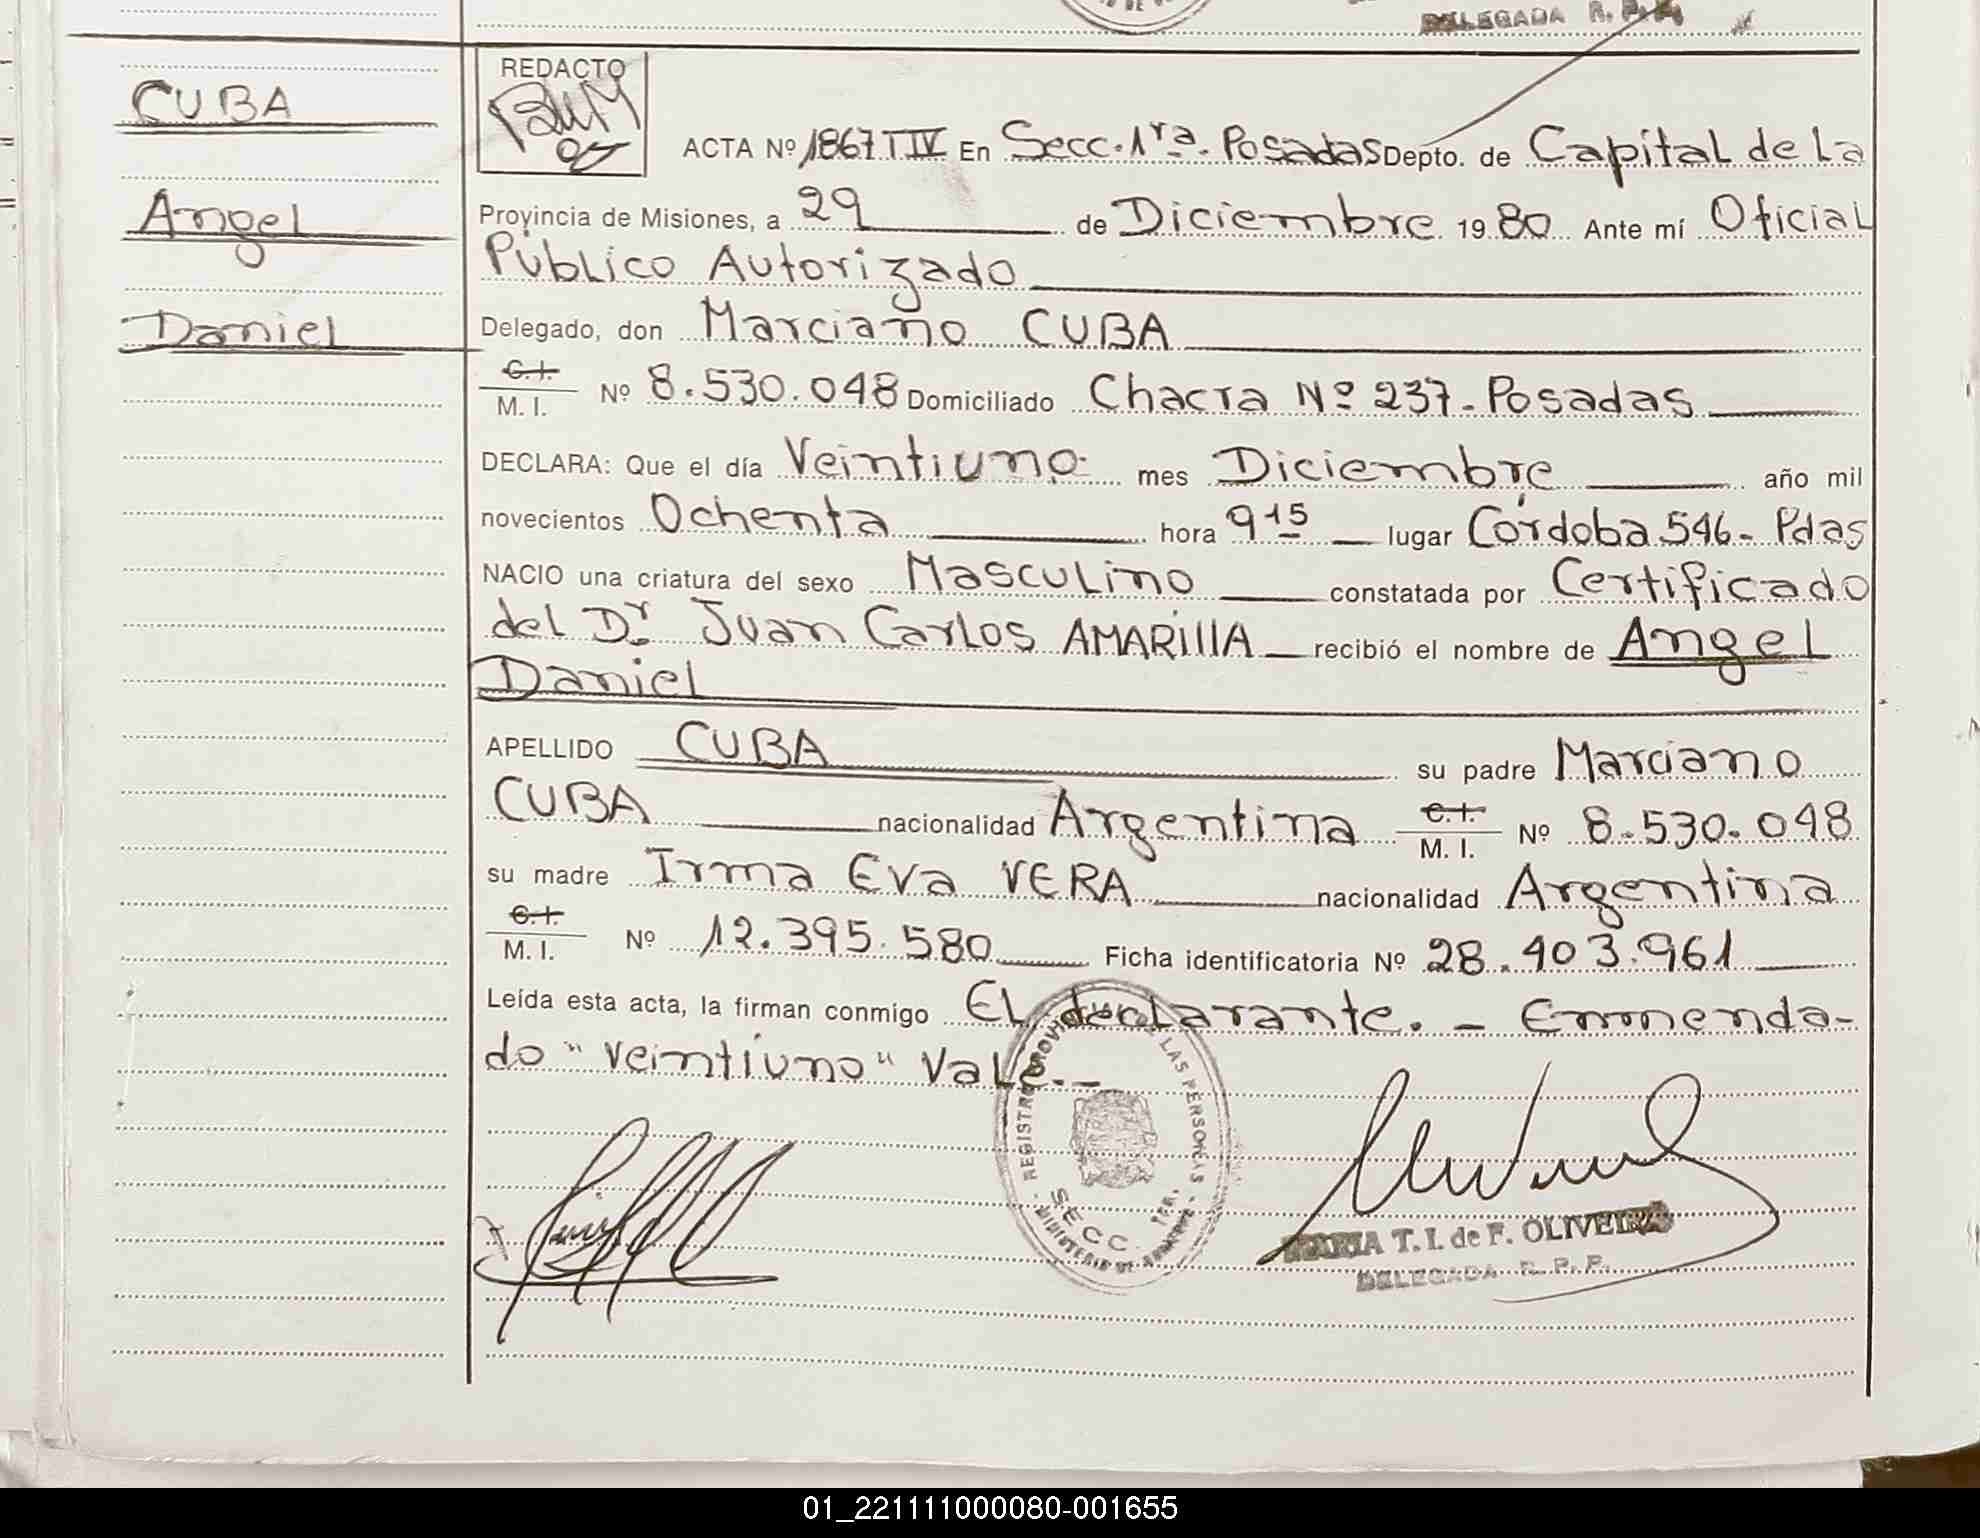 DELEGADA R. P. P.
CUBA
Angel
Daniel
REDACTO
ACTA Nº 1867 T IV En Secc. 1ra. Posadas Depto. de Capital de la
Provincia de Misiones, a 29 de Diciembre 1980 Ante mí Oficial
Público Autorizado
Delegado, don Marciano CUBA
C.I.
M. I. Nº 8.530.048 Domiciliado Chacra Nº 237. Posadas
DECLARA: Que el día Veintiuno mes Diciembre año mil
novecientos Ochenta hora 9 15 lugar Córdoba 546. Pdas
NACIO una criatura del sexo Masculino constatada por Certificado
del Dr. Juan Carlos AMARIllA recibió el nombre de Angel
Daniel
APELLIDO CUBA su padre Marciano
CUBA nacionalidad Argentina C.I. M. I. Nº 8.530.048
su madre Irma Eva VERA nacionalidad Argentina
C.I.
M. I. Nº 12.395.580 Ficha identificatoria Nº 28.403.961
Leída esta acta, la firman conmigo El declarante. - Enmenda-
do "Veintiuno" Vale. -
REGISTRO PROVINCIAL LAS PERSONAS
SECC. 1RA.
MINISTERIO DE
MARIA T. I. de F. OLIVEIRA
DELEGADA R. P. P.
01_221111000080-001655